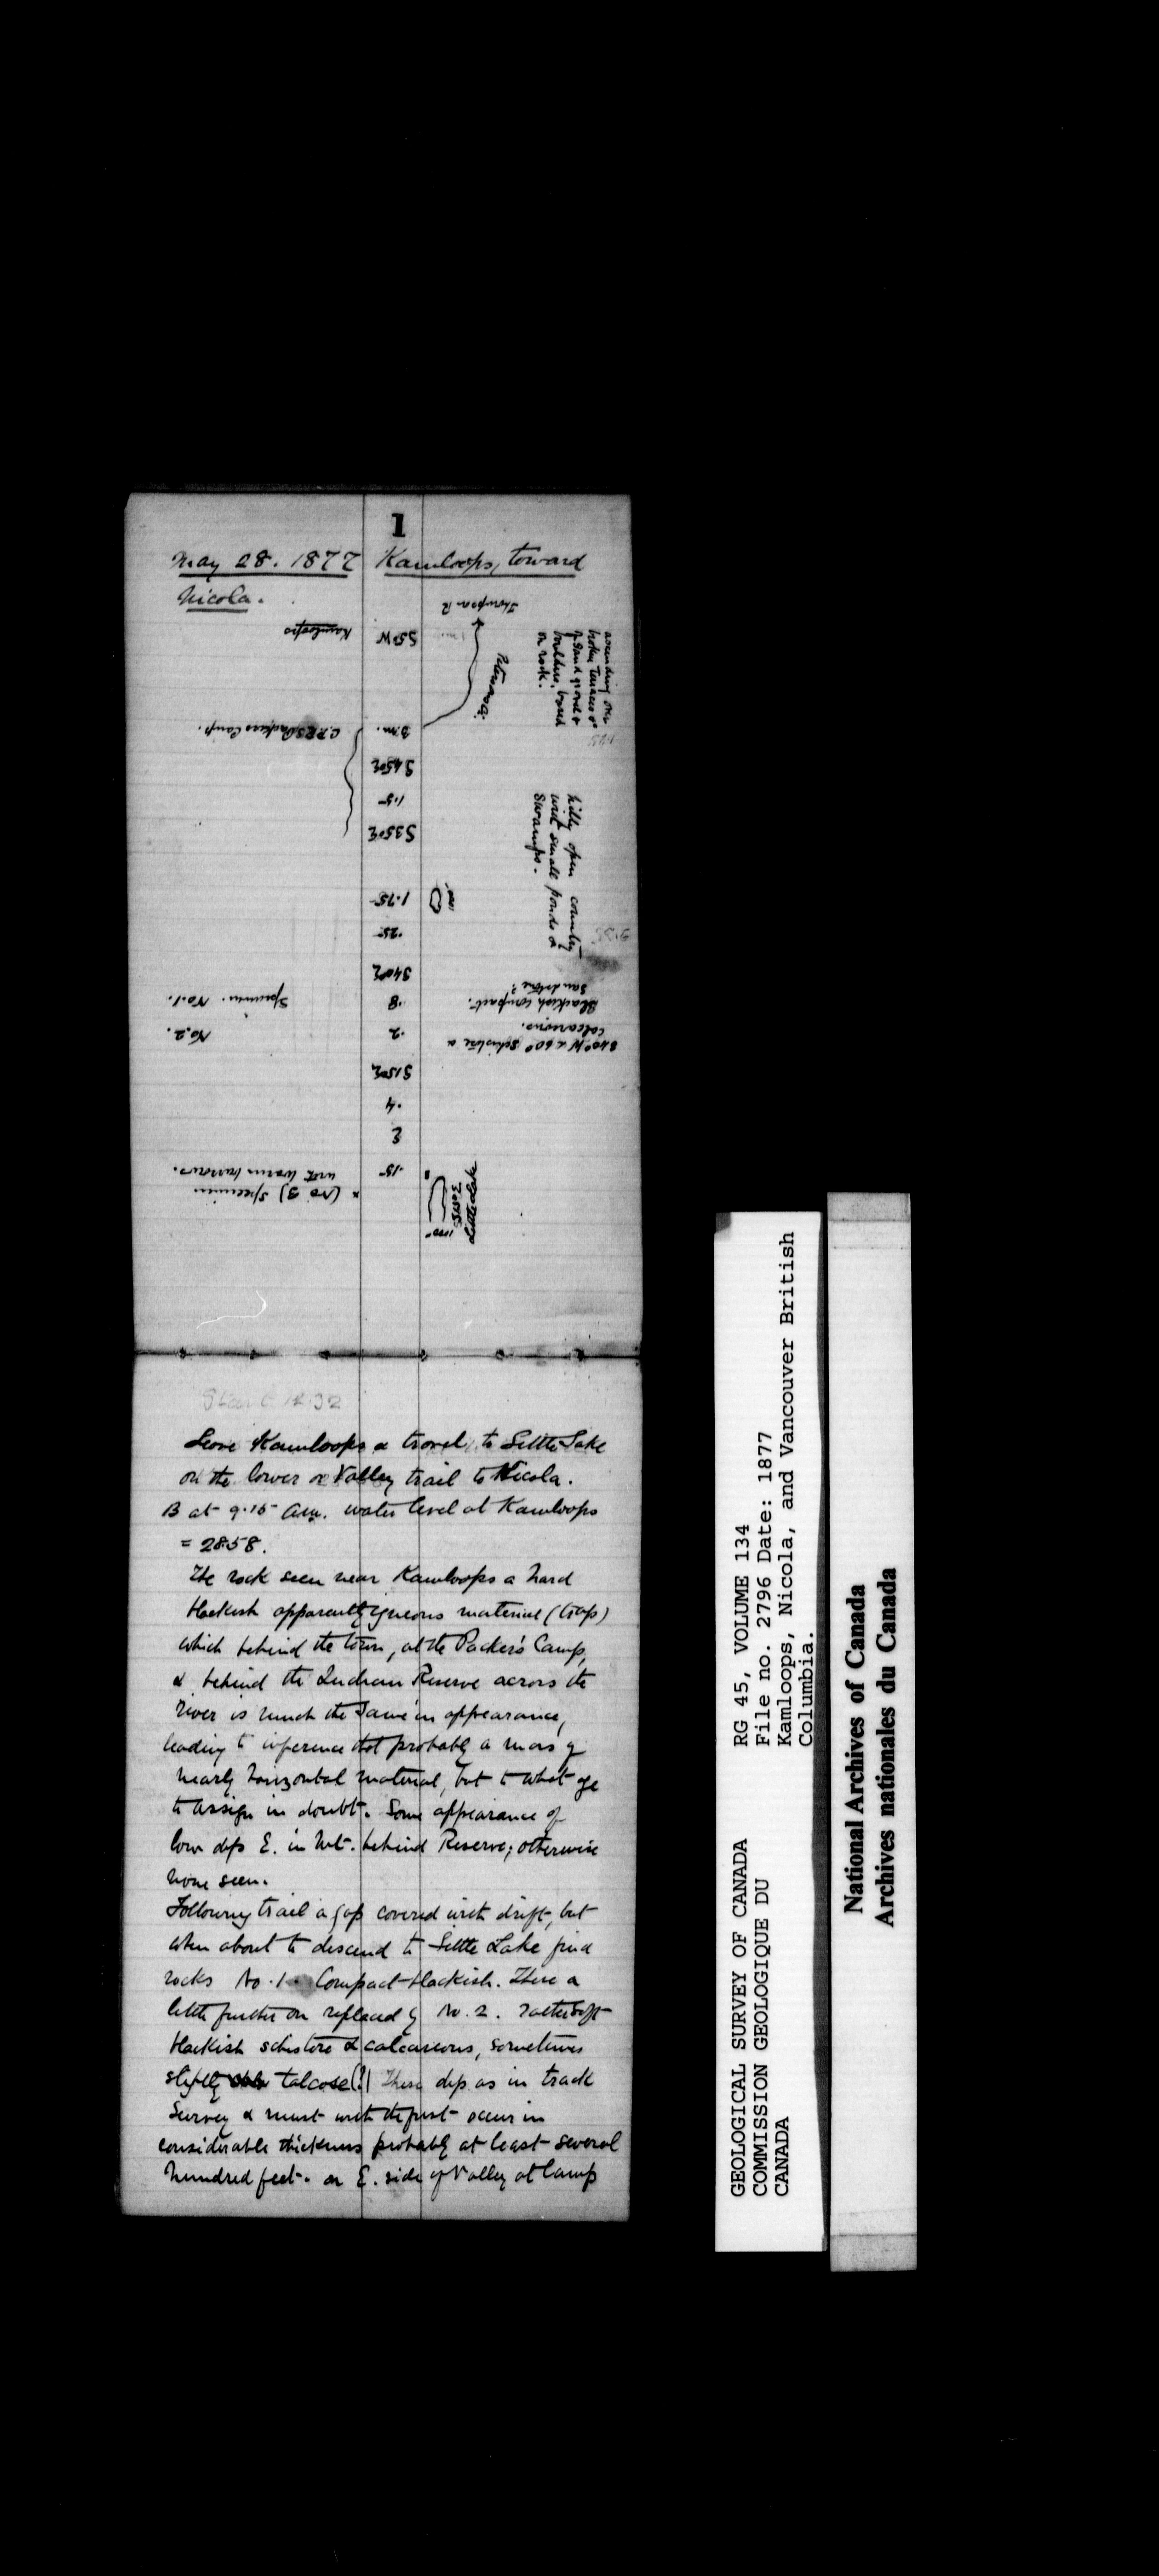 1
May 28. 1877 Kamloops, toward
Nicola.
Thompson R
Kamloops
S5°W
Peterson Cr.
ascending over
broken terraces of
sand gravel &
boulders, based
on rock.
C.P.R.S. Packers Camp.
S45°E
1.5
S35°E
hilly open country
with small ponds &
swamps.
1.75
.25
S40°E
Specimen. No.1.
.8
Blackish compact.
sandstone?
No.2.
.2
S40°W < 60° schistose &
calcareous.
S15°E
.4
E
.15
x (No 3) Specimen
with worm burrows.
S15°E
Little Lake
Start 12.32
Leave Kamloops & travel to Little Lake
on the lower or Valley trail to Nicola.
B at 9.15 A.m. water level at Kamloops
= 28.58.
The rock seen near Kamloops a hard
blackish apparently igneous material (trap)
which behind the town, at the Packer's Camp,
& behind the Indian Reserve across the
river is much the same in appearance,
leading to inference that probably a mass of
nearly horizontal material, but to what age
to assign in doubt. Some appearance of
low dips E. in Mt. behind Reserve; otherwise
none seen.
Following trail a gap covered with drift, but
when about to descend to Little Lake find
rocks No. 1. Compact blackish. These a
little further on replaced by No. 2. rather soft
blackish schistose & calcareous, sometimes
slightly talcose (?) These dip as in track
Survey & must with the first occur in
considerable thickness probably at least several
hundred feet. on E. side of Valley at Camp
GEOLOGICAL SURVEY OF CANADA
COMMISSION GEOLOGIQUE DU
CANADA
RG 45, VOLUME 134
File no. 2796 Date: 1877
Kamloops, Nicola, and Vancouver British
Columbia.
National Archives of Canada
Archives nationales du Canada